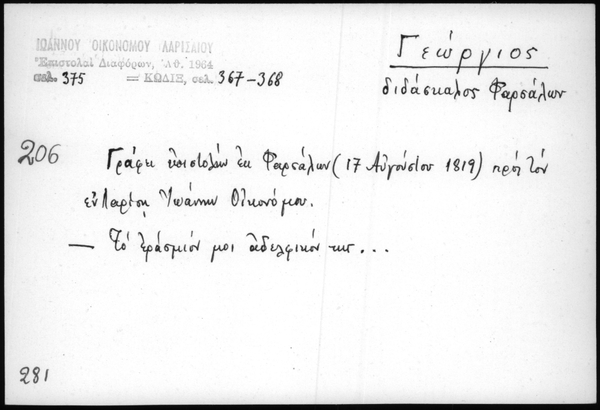 ΙΩΑΝΝΟΥ ΟΙΚΟΝΟΜΟΥ ΛΑΡΙΣΑΙΟΥ
Ἐπιστολαὶ Διαφόρων, Ἀθ. 1964
σελ. 375 = ΚΩΔΙΞ, σελ. 367-368
Γεώργιος
διδάσκαλος Φαρσάλων
206
Γράφει ἐπιστολὴν ἐκ Φαρσάλων (17 Αὐγούστου 1819) πρὸς τὸν
ἐν Λαρίσῃ Ἰωάννην Οἰκονόμου.
— Τὸ ἐράσμιόν μοι ἀδελφικόν της...
281